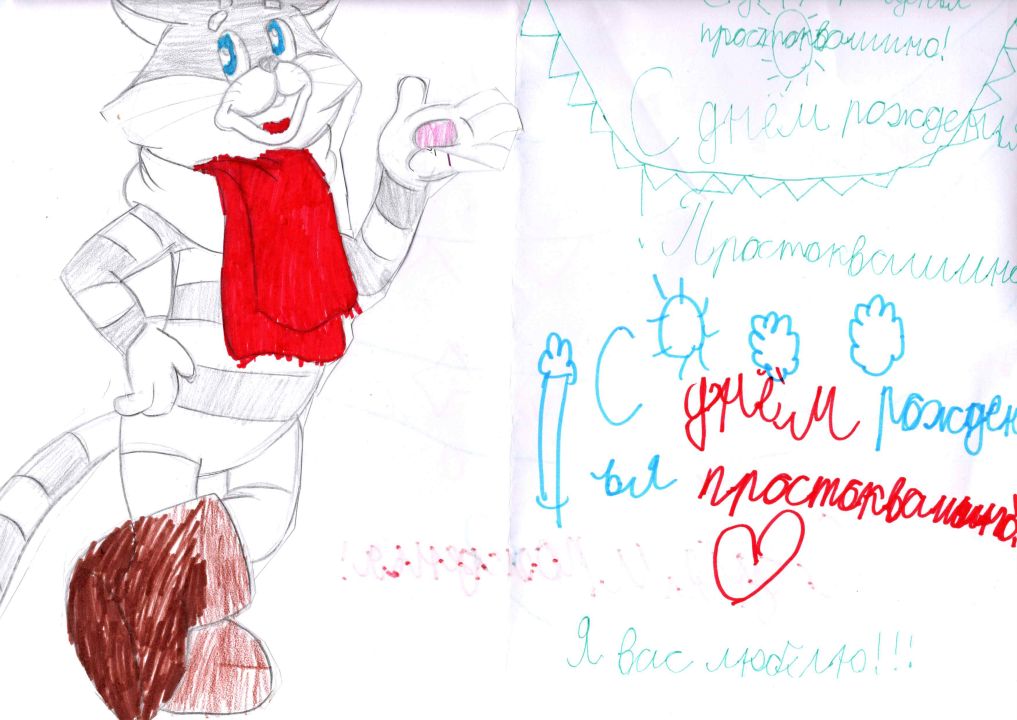 С днём рожденья
простоквашино!
С днём рожденья
Простоквашино
С днём рожден
ья простоквашино!
Я вас люблю!!!